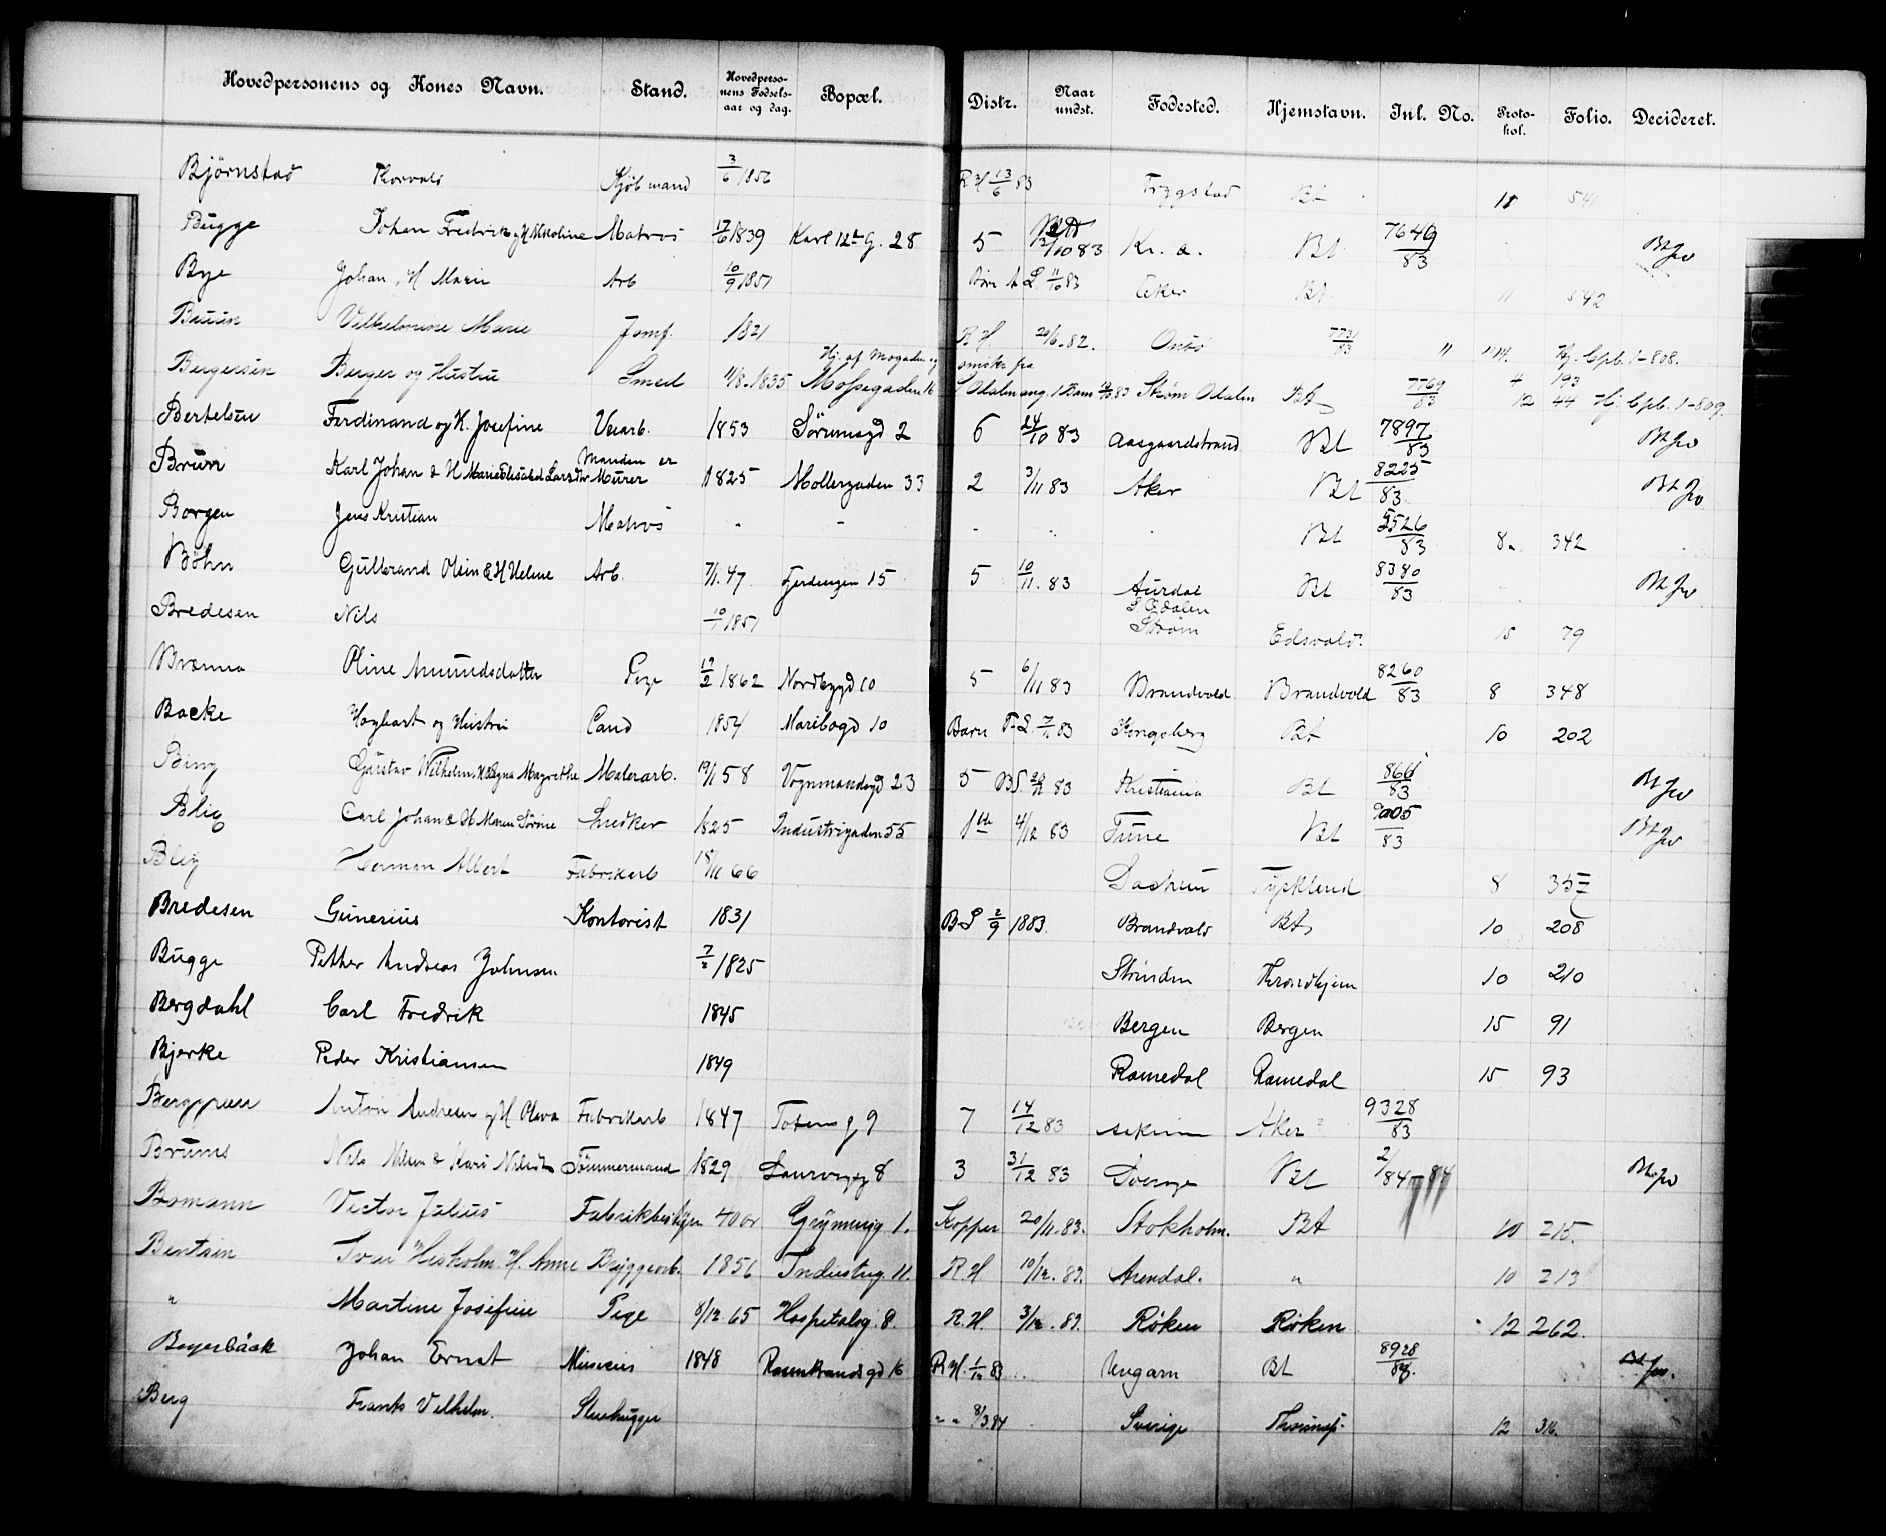 Hovedpersonens og Kones Navn. Stand. Hovedpersonens Fødselsaar og dag. Bopæl. Distr. Naar undst. Fødested. Hjemstavn. Inl. No. Protokol. Folio. Decideret.
Bjørnstad Thorvald Kjøbmand 3/6 1856 R H 13/6 83 Trygstad Bt 11 541
Bugge Johan Fredrik og H Nikoline Matros 17/6 1839 Karl 12te G. 28 5 12/10 83 Kr. a. Bt 7649/83 Bt Jv
Bye Johan, H Marie Arb 10/9 1851 11/10 83 Aker Bt 11 542
Bruun Vilhelmine Marie Jomf. 1821 R H. 20/6.82. Onsø 7731/83 " Hj. Cpb. 1-808.
Bergersen Berger og Hustru Smed 11/8.1835 Mossegaden 16 Strøm Odalen Bt 7769/83 4 193
12 44 Hj. Cpb. 1-809.
Bertelsen Ferdinand og H. Josefine Verarb. 1853 Sørumsgd 2 6 24/10 83 Aasgaardstrand Bt 7897/83 Bt Jv
Brun Karl Johan & H Marie Elisabet Larsdtr Manden er Murer 1825 Møllergaden 33 2 3/11 83 Aker Bt 8225/83 Bt Jv
Borgen Jens Kristian Matros - - - Bt 5526/83 8. 342
Bøhn Gulbrand Olsen & H Helene Arb. 7/1.47 Fjerdingen 15 5 10/11.83 Aurdal Bt 8380/83 Bt Jv
Bredesen Nils 10/1 1851 S. Odalen Strøm Edsvold. 15 79
Brænna Oline Amundsdatter Pige 17/2 1862 Nordbygd 10 5 6/11 83 Brandvold Brandvold 8260/83 8 348
Backe Hagbart og Hustru Cand 1854 Maribogd 10 Barn 7/11 83 Kongsberg Bt 10 202
Bing Gustav Wilhelm, H Magrethe Malerarb. 19/1 58 Vognmandsgd 23 5 83 Kristiania Bt 8661/83 Bt Jv
Blix Carl Johan & H Maren Sørine Snedker 1825 Industrigaden 55 1ste 4/12 83 Tune Bt 9005/83 Bt Jv
Bley Herman Albert Fabrikarb 18/11 66 Tyskland 8 355
Bredesen Gunerius Kontorist 1831 B S 2/9 1883. Brandvold Bt 10 208
Bugge Petter Andreas Johnsen 7/2 1825 Strinden Throndhjem 10 210
Bergdahl Carl Fredrik 1845 Bergen Bergen 15 91
Bjerke Peder Kristiansen 1849 Romedal Romedal 15 93
Berggreen Anton Andresen og H Olava Fabrikarb 1847 Totensg 9 7 14/12 83 Aker 9328/83
Brums Nils Nilsen & Kari Nilsdtr Tømmermand 1829 Laurvigsg 8 3 31/12 83 Sverige Bt 2/84 Bt Jv
Bomann Victor Julius Fabrikbestyrer 40 år Grynnersg 1. Kopper 20/11.83. Stokholm. Bt 10 215.
Bentsen Ivar Hisholm. H. Anne Bryggearb. 1856 Industrig. 11. R. H 10/12.83. Arendal. " 10 213
" Martine Josefine Pige 8/12.65 Hospitalsg. 8. R. H. 3/12.83. Røken Røken 12 262.
Beyerbäck Johan Ernst Musicus 1848 Rosenkrandsgd 16 R H. 1/12 83 Ungarn Bt 8928/83. Bt Jv.
Berg Frants Vilhelm. Stenhugger " " 8/3.84 Sverige 12 316.